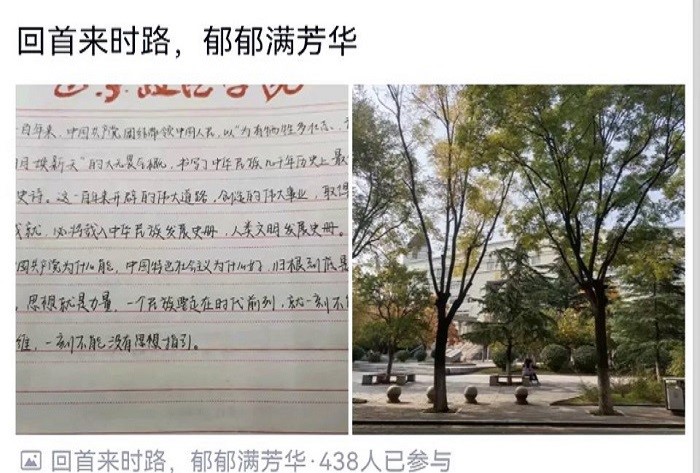 回首来时路，郁郁满芳华
百年来，中国共产党团结带领中国人民，以“为有牺牲多壮志、
月换新天”的大无畏气概，书写了中华民族几千年历史上最
史诗。这一百年来开辟的伟大道路，创造的伟大事业，取得
成就，必将载入中华民族发展史册，人类文明发展史册。
国共产党为什么能，中国特色社会主义为什么好，归根到底是
，思想就是力量。一个民族要走在时代前列，就一刻不能
维，一刻不能没有思想指引。
回首来时路，郁郁满芳华·438人已参与